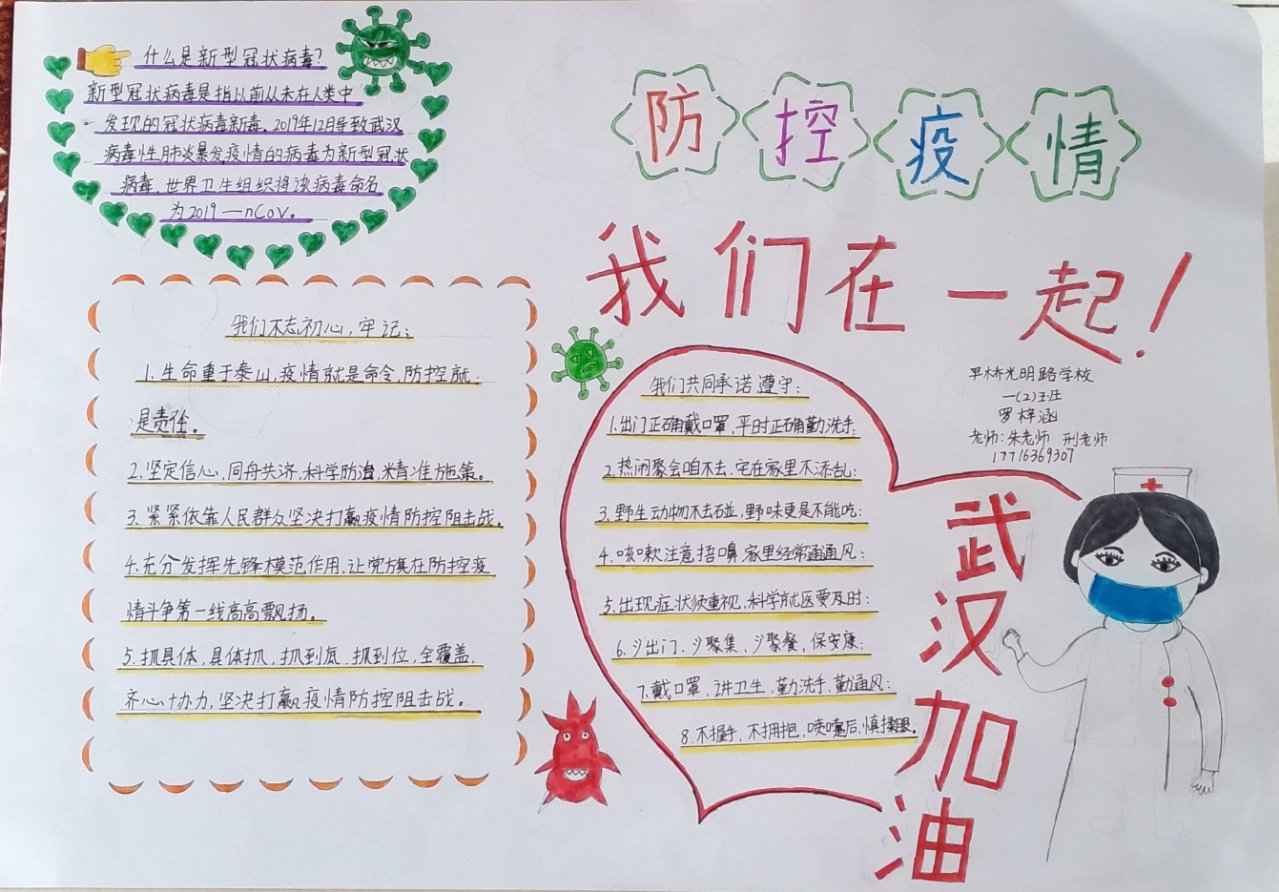 什么是新型冠状病毒?
新型冠状病毒是指以前从未在人类中
发现的冠状病毒新毒。2019年12月导致武汉
病毒性肺炎暴发疫情的病毒为新型冠状
病毒,世界卫生组织将该病毒命名
为2019—nCoV。
防控疫情
我们在一起!
我们不忘初心,牢记:
1.生命重于泰山,疫情就是命令,防控就
是责任。
2.坚定信心,同舟共济,科学防治,精准施策。
3.紧紧依靠人民群众坚决打赢疫情防控阻击战。
4.充分发挥先锋模范作用,让党旗在防控疫
情斗争第一线高高飘扬。
5.抓具体,具体抓,抓到底,抓到位,全覆盖,
齐心协力,坚决打赢疫情防控阻击战。
我们共同承诺遵守:
1.出门正确戴口罩,平时正确勤洗手;
2.热闹聚会咱不去,宅在家里不添乱;
3.野生动物不去碰,野味更是不能吃;
4.咳嗽注意捂口鼻,家里经常通通风;
5.出现症状须重视,科学就医要及时;
6.少出门,少聚集,少聚餐,保安康;
7.戴口罩,讲卫生,勤洗手,勤通风;
8.不握手,不拥抱,喷嚏后,慎揉眼。
光明路学校
一(2)
罗梓涵
老师:朱老师 邢老师
17716369307
武汉加油